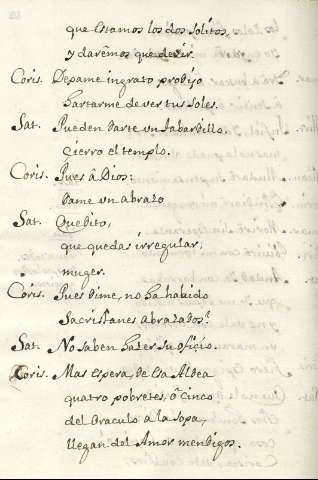 que estamos los dos solitos,
y darémos que dezir.
Coris. Dexame ingrato prodijo
hartarme de ver tus soles.
Sat. Pueden darte un tabardillo.
cierro el templo.
Coris. Pues â Dios:
dame un abrazo
Sat. Quedito,
que quedas irregular,
muger.
Coris. Pues dime, no ha habido
Sacristanes abrazados?
Sat. No saben hazer su oficio.
Coris. Mas espera, de esa Aldea
quatro pobretes, ô cinco
del Oraculo a la sopa,
llegan del Amor mendigos.